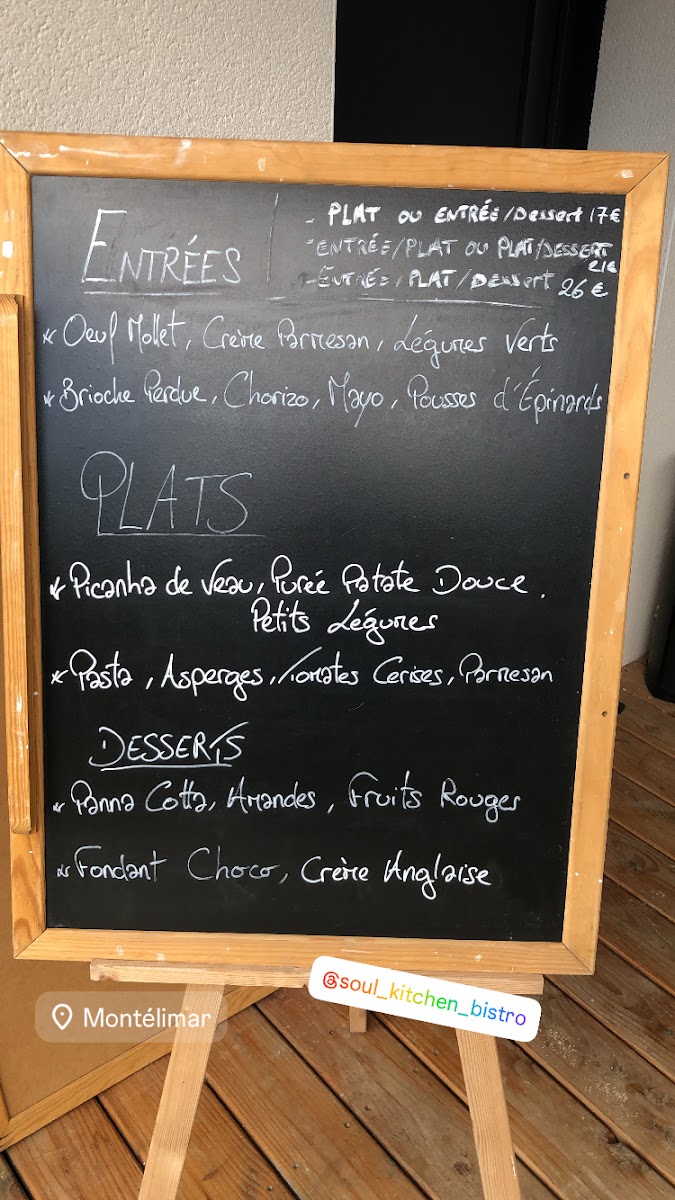 ENTRÉES
- PLAT OU ENTRÉE/Dessert 17€
- ENTRÉE/PLAT OU PLAT/DESSERT
21€
- ENTRÉE/PLAT/Dessert 26€
* Oeuf Mollet, Crème Parmesan, Légumes Verts
* Brioche Perdue, Chorizo, Mayo, Pousses d'Épinards
PLATS
* Picanha de Veau, Purée Patate Douce,
Petits Légumes
* Pasta, Asperges, Tomates Cerises, Parmesan
DESSERTS
* Panna Cotta, Amandes, Fruits Rouges
* Fondant Choco, Crème Anglaise
@soul_kitchen_bistro
Montélimar